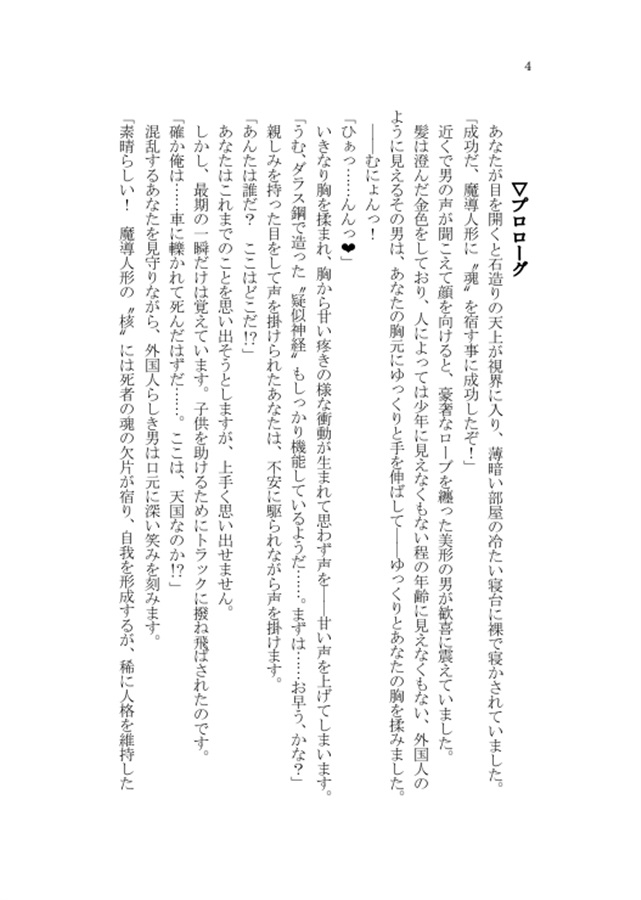 4
▽プロローグ
あなたが目を開くと石造りの天上が視界に入り、薄暗い部屋の冷たい寝台に裸で寝かされていました。
「成功だ、魔導人形に〝魂〟を宿す事に成功したぞ！」
近くで男の声が聞こえて顔を向けると、豪奢なローブを纏った美形の男が歓喜に震えていました。
髪は澄んだ金色をしており、人によっては少年に見えなくもない程の年齢に見えなくもない、外国人の
ように見えるその男は、あなたの胸元にゆっくりと手を伸ばして――ゆっくりとあなたの胸を揉みました。
――むにょんっ！
「ひぁっ……んんっ❤」
いきなり胸を揉まれ、胸から甘い疼きの様な衝動が生まれて思わず声を――甘い声を上げてしまいます。
「うむ、ダラス鋼で造った〝疑似神経〟もしっかり機能しているようだ……。まずは……お早う、かな？」
親しみを持った目をして声を掛けられたあなたは、不安に駆られながら声を掛けます。
「あんたは誰だ？　ここはどこだ!?」
あなたはこれまでのことを思い出そうとしますが、上手く思い出せません。
しかし、最期の一瞬だけは覚えています。子供を助けるためにトラックに撥ね飛ばされたのです。
「確か俺は……車に轢かれて死んだはずだ……。ここは、天国なのか!?」
混乱するあなたを見守りながら、外国人らしき男は口元に深い笑みを刻みます。
「素晴らしい！　魔導人形の〝核〟には死者の魂の欠片が宿り、自我を形成するが、稀に人格を維持した